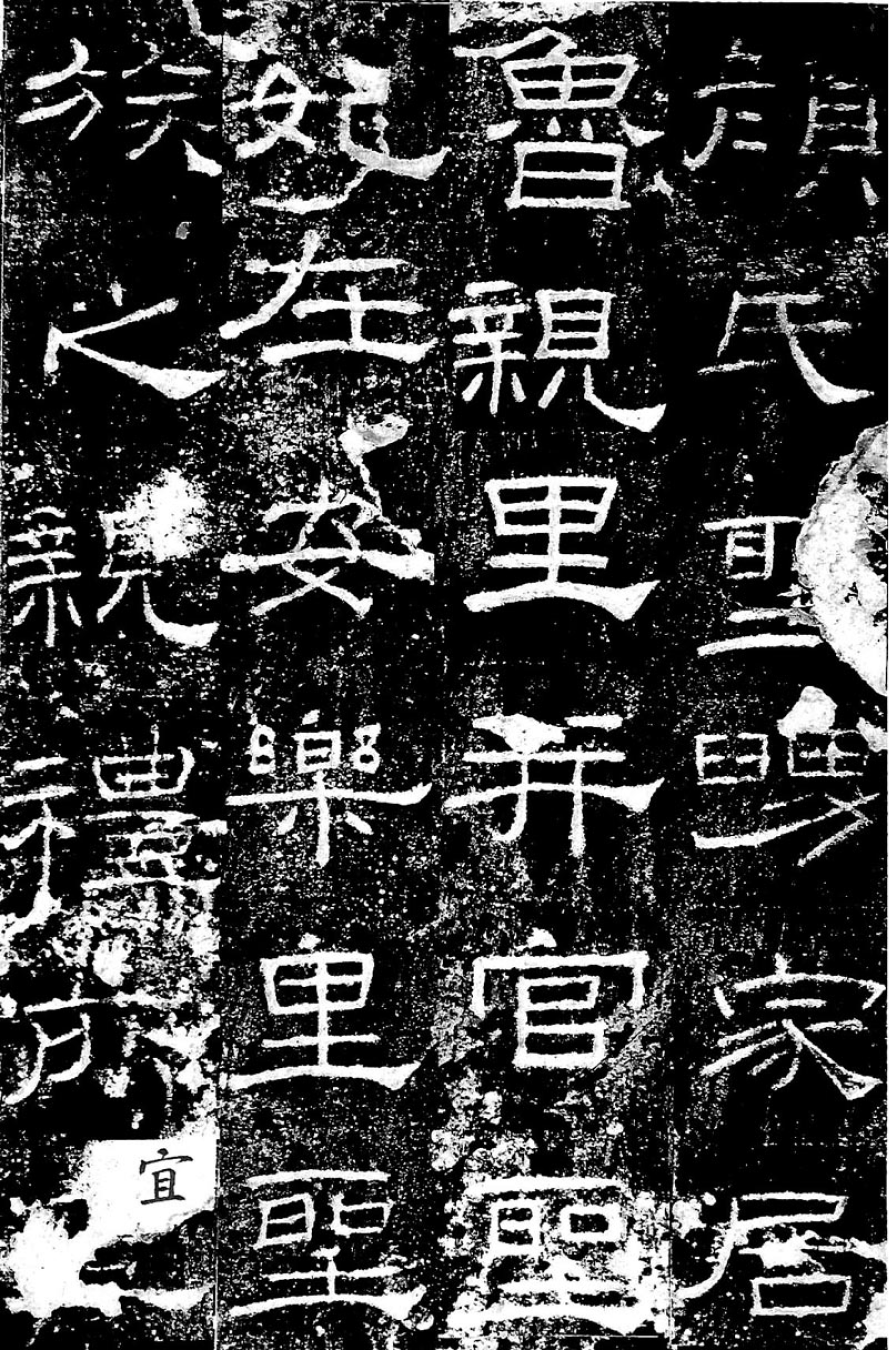 顏氏聖舅家居
魯親里并官聖
妃在安樂里聖
族之親禮所
宜